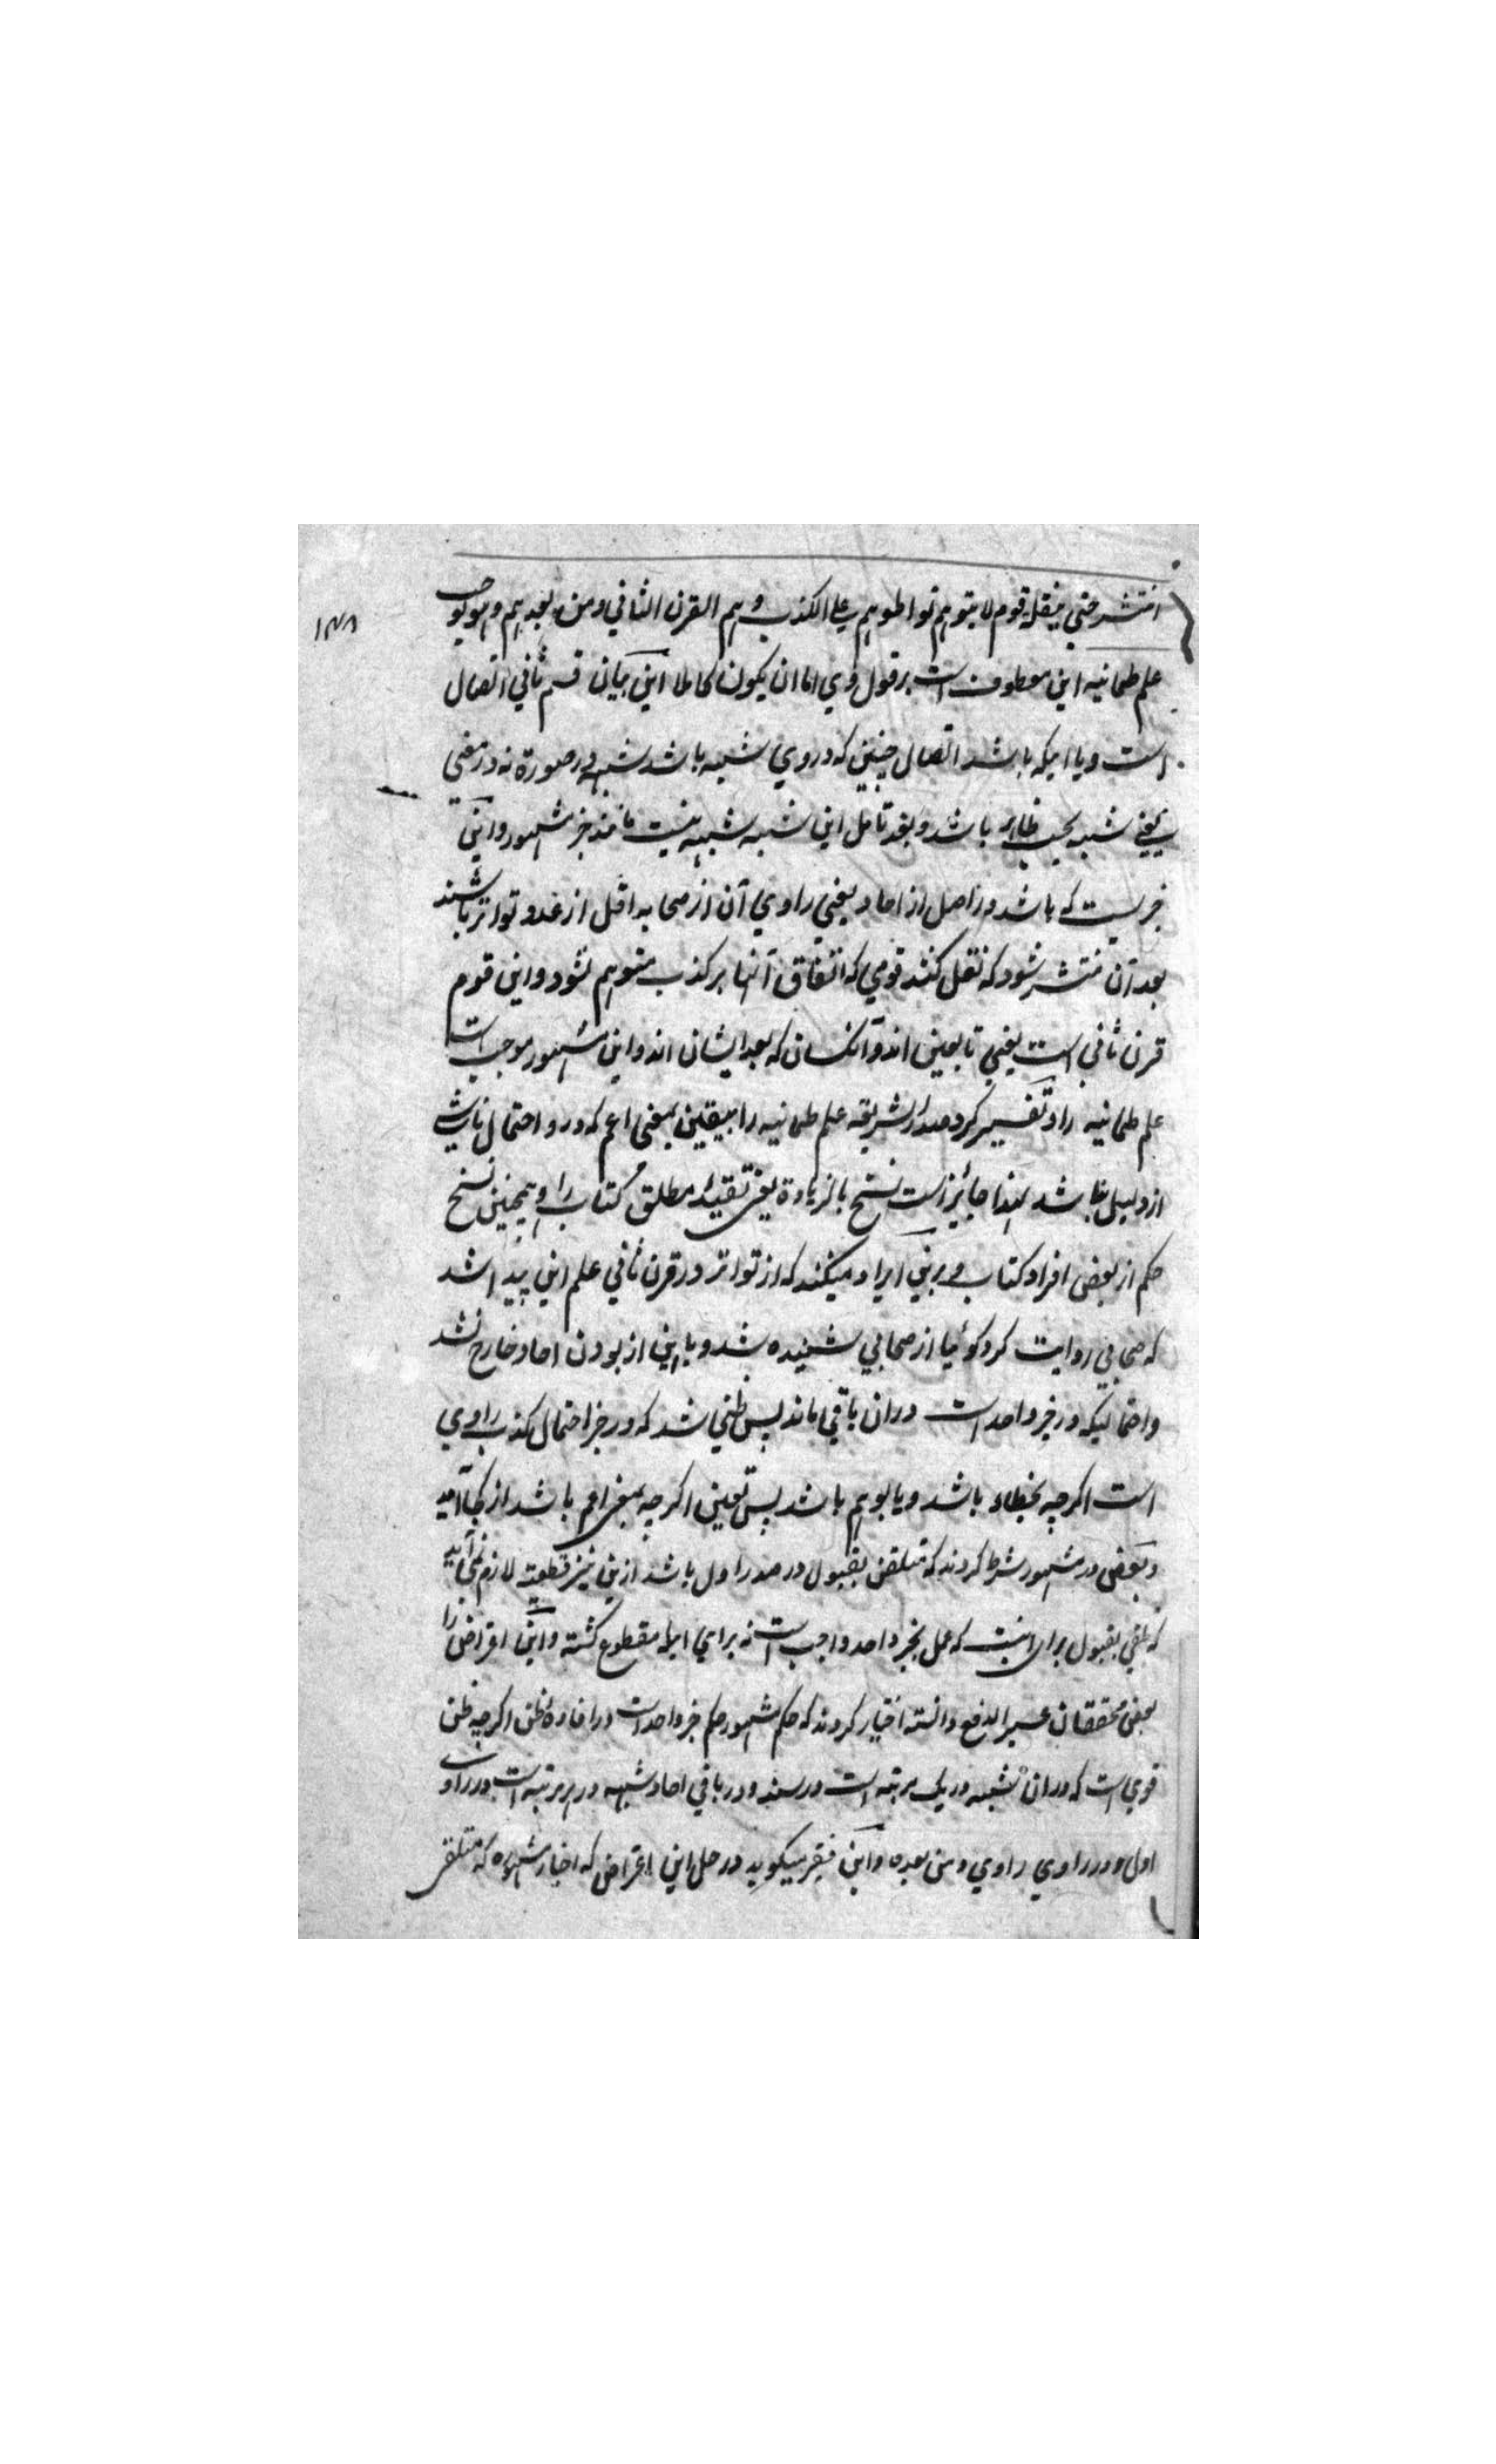 انتشر حتي ينقله قوم لا يتوهم تواطوهم علي الكذب و هم القرن الثاني ومن بعدهم وهو يوجب
١٣٨
علم طمانيه اين معطوف است بر قول وي اما ان يكون كاملا اين بيان قسم ثاني اتصال
است ويا اينكه باشد اتصال چنين كه در وي شبه باشد شبهه در صورة نه در معني
يعني شبه بحسب ظاهر باشد و بعد تامل اين شبه شبهه نيست مانند خبر مشهور و اين
خبريست كه باشد در اصل از احاد يعني راوي آن از صحابه اقل از عدد تواتر باشند
بعد آن منتشر شود كه نقل كنند قومي كه اتفاق آنها بر كذب متوهم نشود و اين قوم
قرن ثاني است يعني تابعين اند و آنكسان كه بعد ايشان اند و اين مشهور موجب است
علم طمانيه را و تفسير كرد صدر الشريعه علم طمانيه را بيقين بمعني اعم كه در و احتمال ناشي
از دليل نباشد لهذا جائز است نسخ بالزيادة يعني تقييد مطلق كتاب را و همچنين نسخ
حكم از بعض افراد كتاب و برين ايراد ميكنند كه از تواتر در قرن ثاني علم اين پيدا شد
كه صحابي روايت كرد گوئيا از صحابي شنيده شد و با اين از بودن احاد خارج نشد
و احتماليكه در خبر واحد است دران باقي ماند پس ظني شد كه در خبر احتمال كذب راوي
است اگرچه بخطاء باشد ويا بوهم باشد پس يقين اگرچه بمعني اعم باشد از كجا آمد
و بعضي در مشهور شرط كردند كه متلقي بقبول در صدر اول باشد ازين نيز قطعيت لازم نمي آيد
كه تلقي بقبول براي اينست كه عمل بخبر واحد واجب است نه براي اينكه مقطوع گشته و اين اعتراض را
بعضي محققان عسير الدفع دانسته اختيار كردند كه حكم مشهور حكم خبر واحد است در افادۀ ظن اگرچه ظن
قوي است كه دران شبهه در يك مرتبه است در سند و در باقي احاد شبهه در هر مرتبه است در راوي
اول و در راوي راوي و من بعده و اين فقير ميگويد در حل اين اعتراض كه اخبار مشهوره كه متلقي